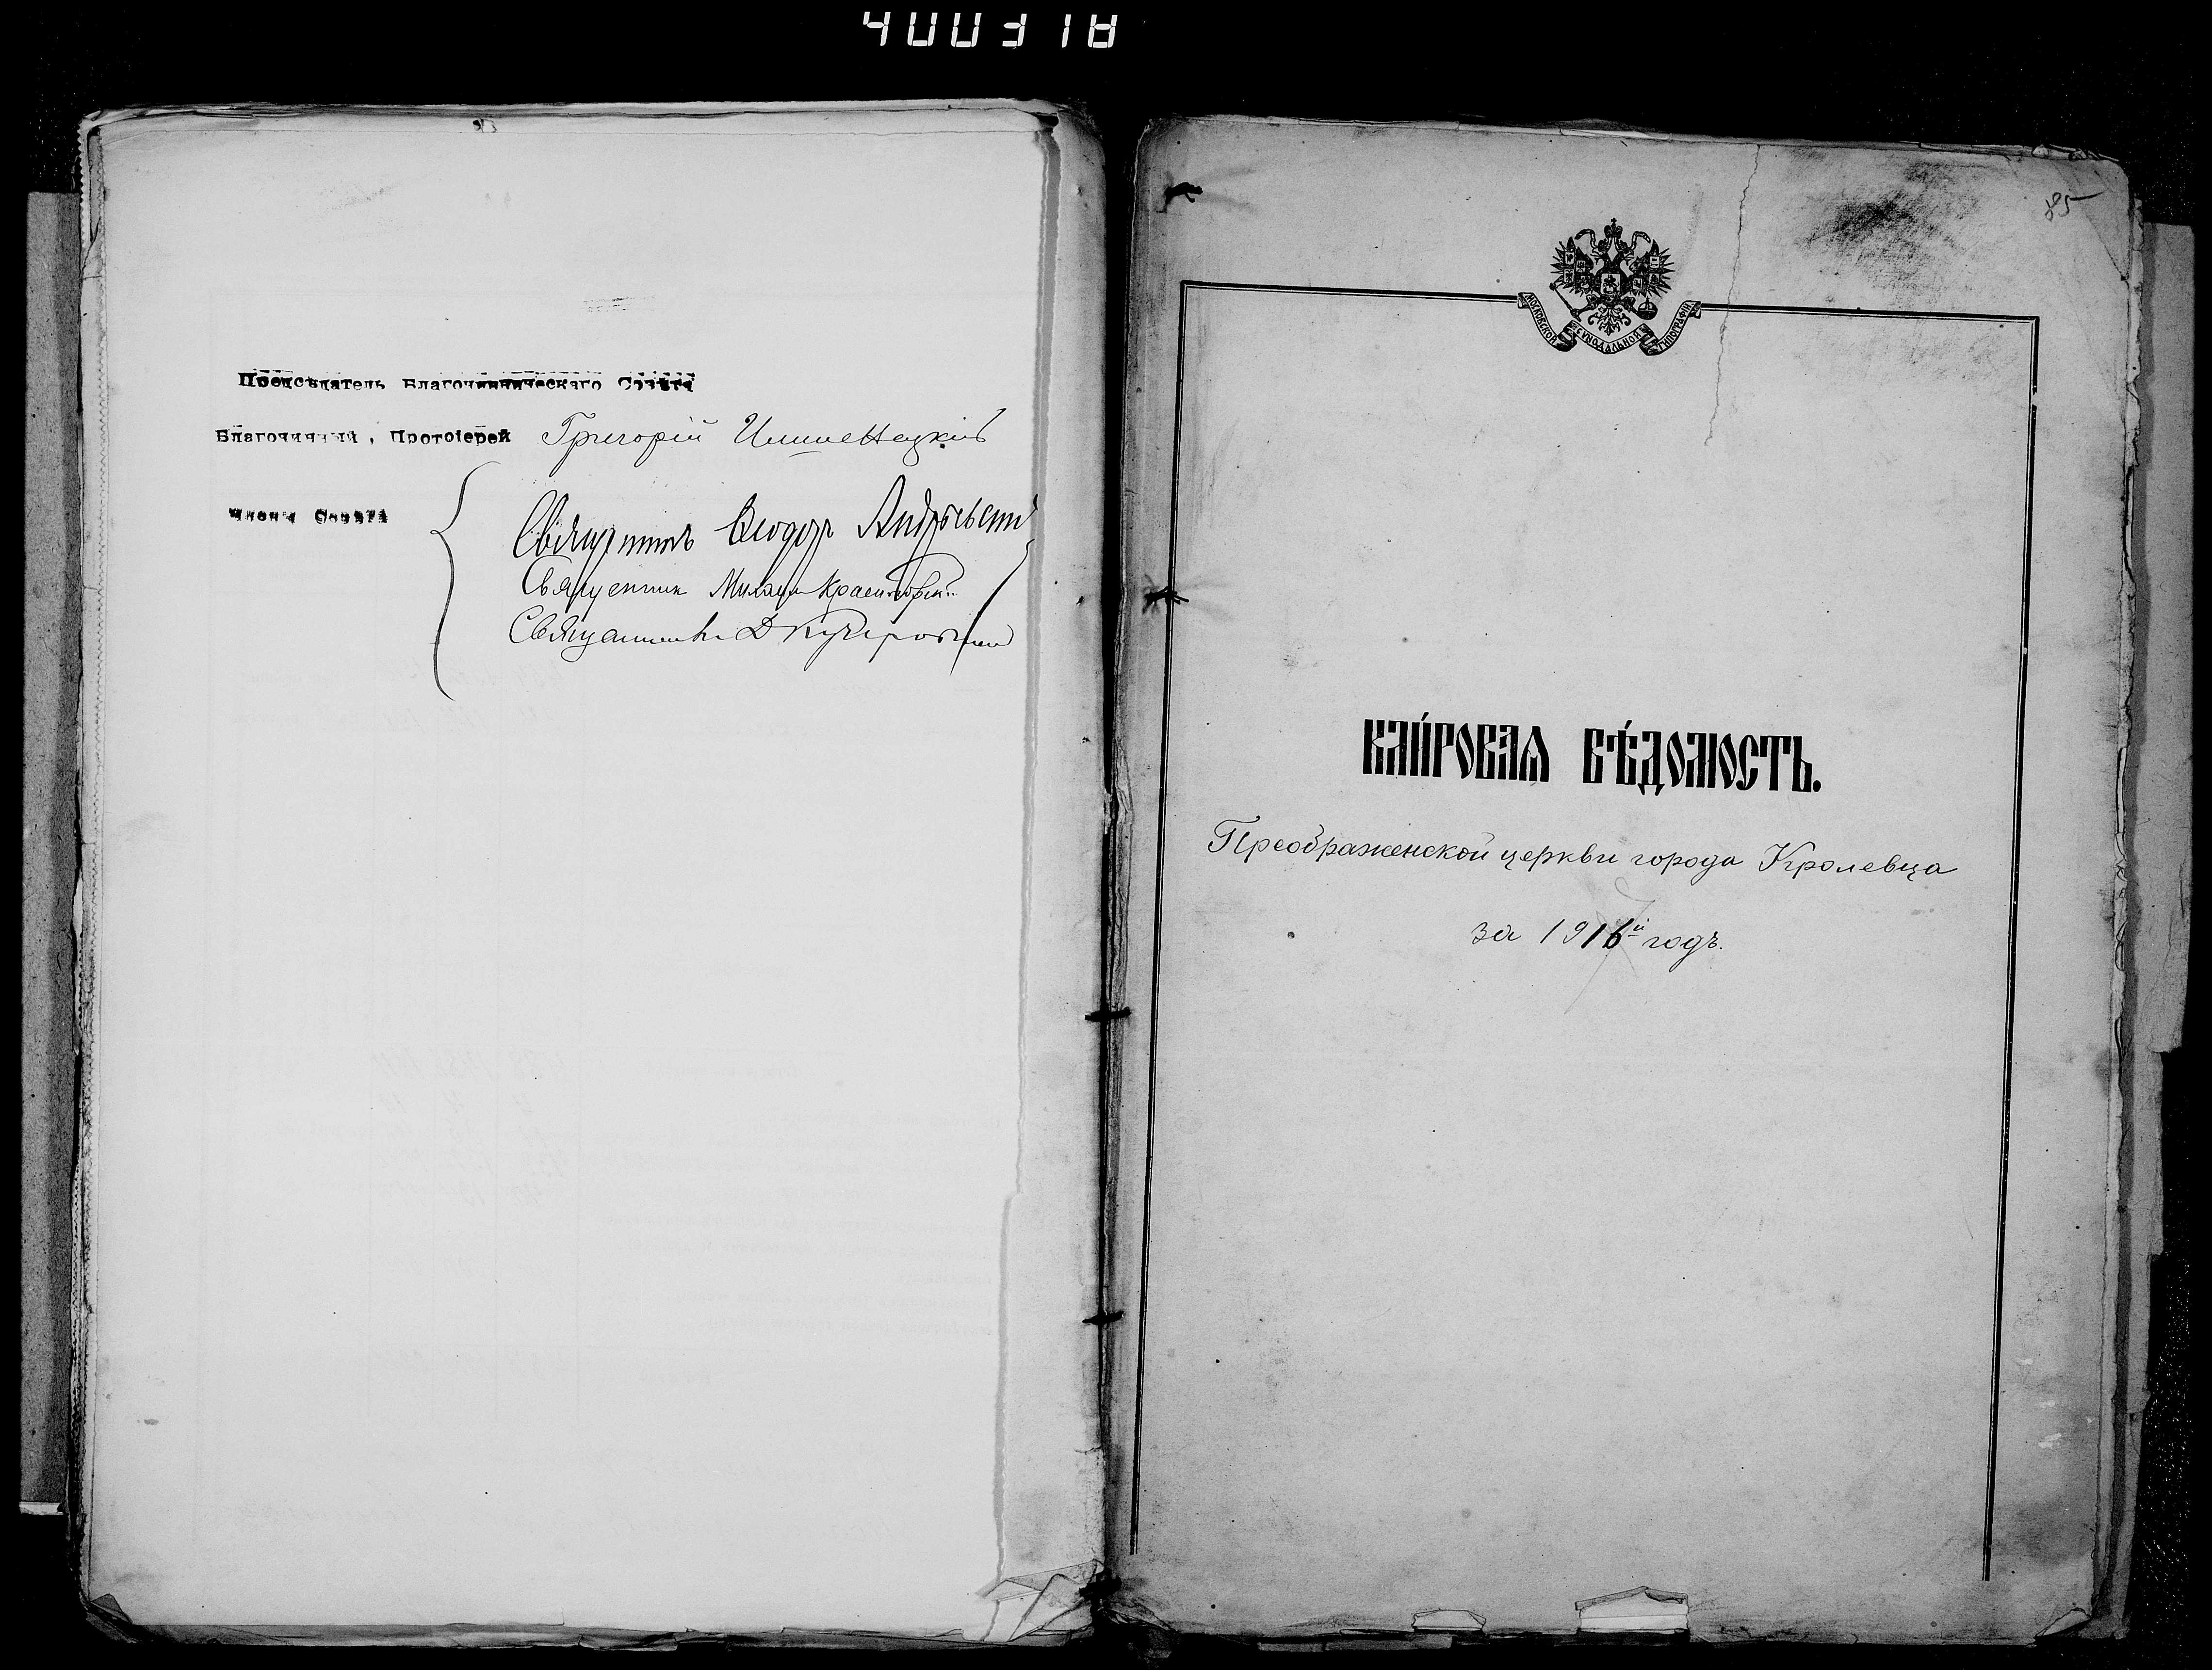 400318
Предсѣдатель Благочинническаго Совѣта
Благочинный, Протоіерей Григорій
Члены Совѣта
Священникъ Ѳеодоръ Андріевскій
Священник Михаил Красногорскій
Священникъ Д Кучеровскій
85
МОСКОВСКОЙ СѴНОДАЛЬНОЙ ТИПОГРАФІИ
КЛИ́РОВАѦ ВѢ́ДОМОСТЬ.
Преображенской церкви города Кролевца
за 1916й годъ.